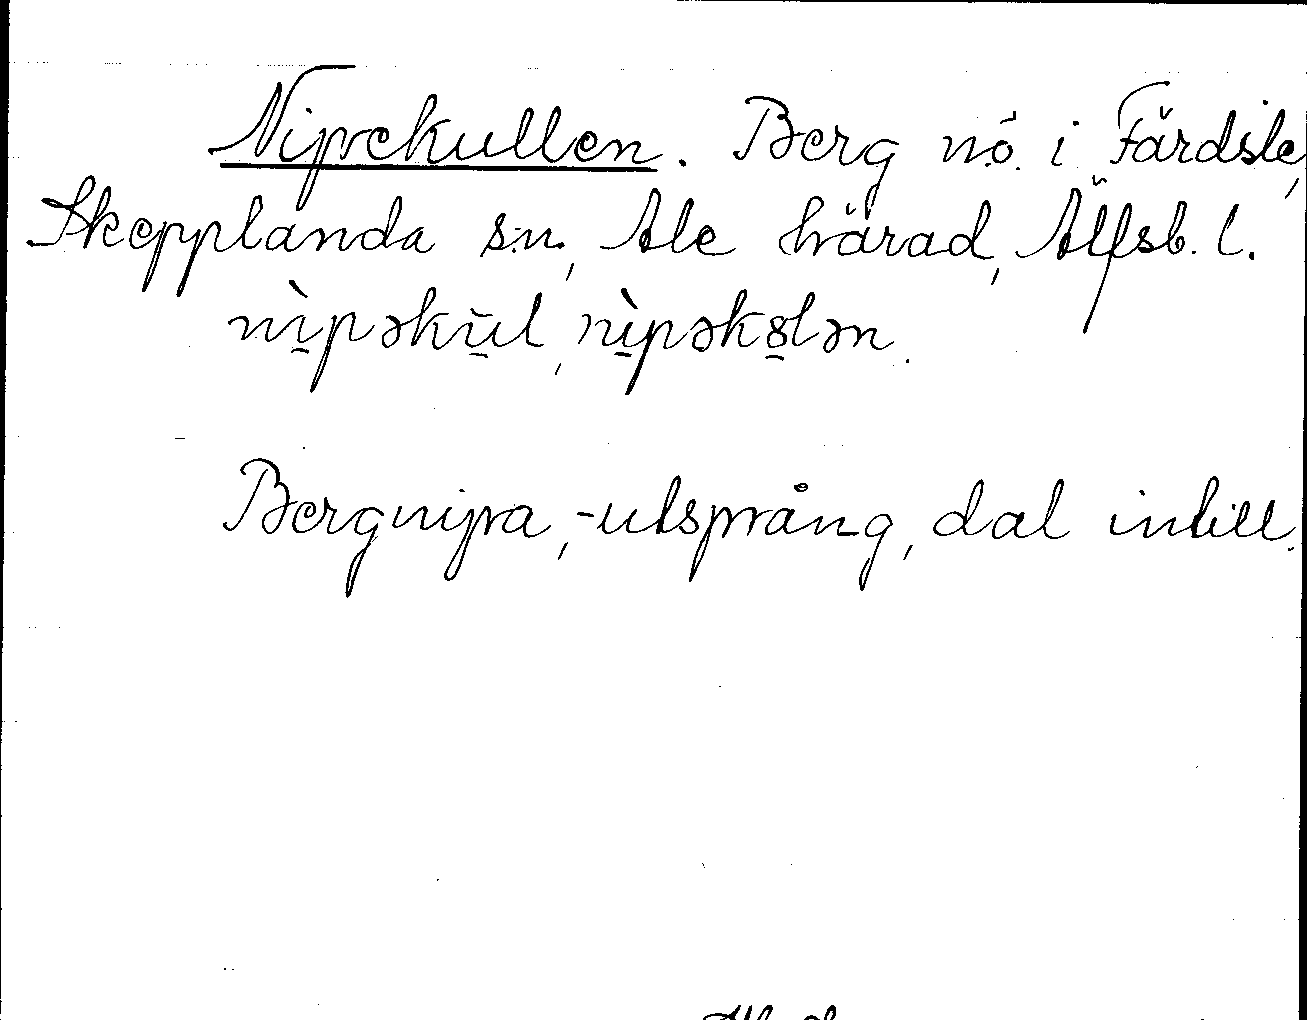 Nipekullen. Berg n.ö. i Färdsle,
Skepplanda sn, Ale härad, Älfsb. l.
nìpəkūl, nìpəkɷlən.
Bergnipa, -utsprång, dal intill.